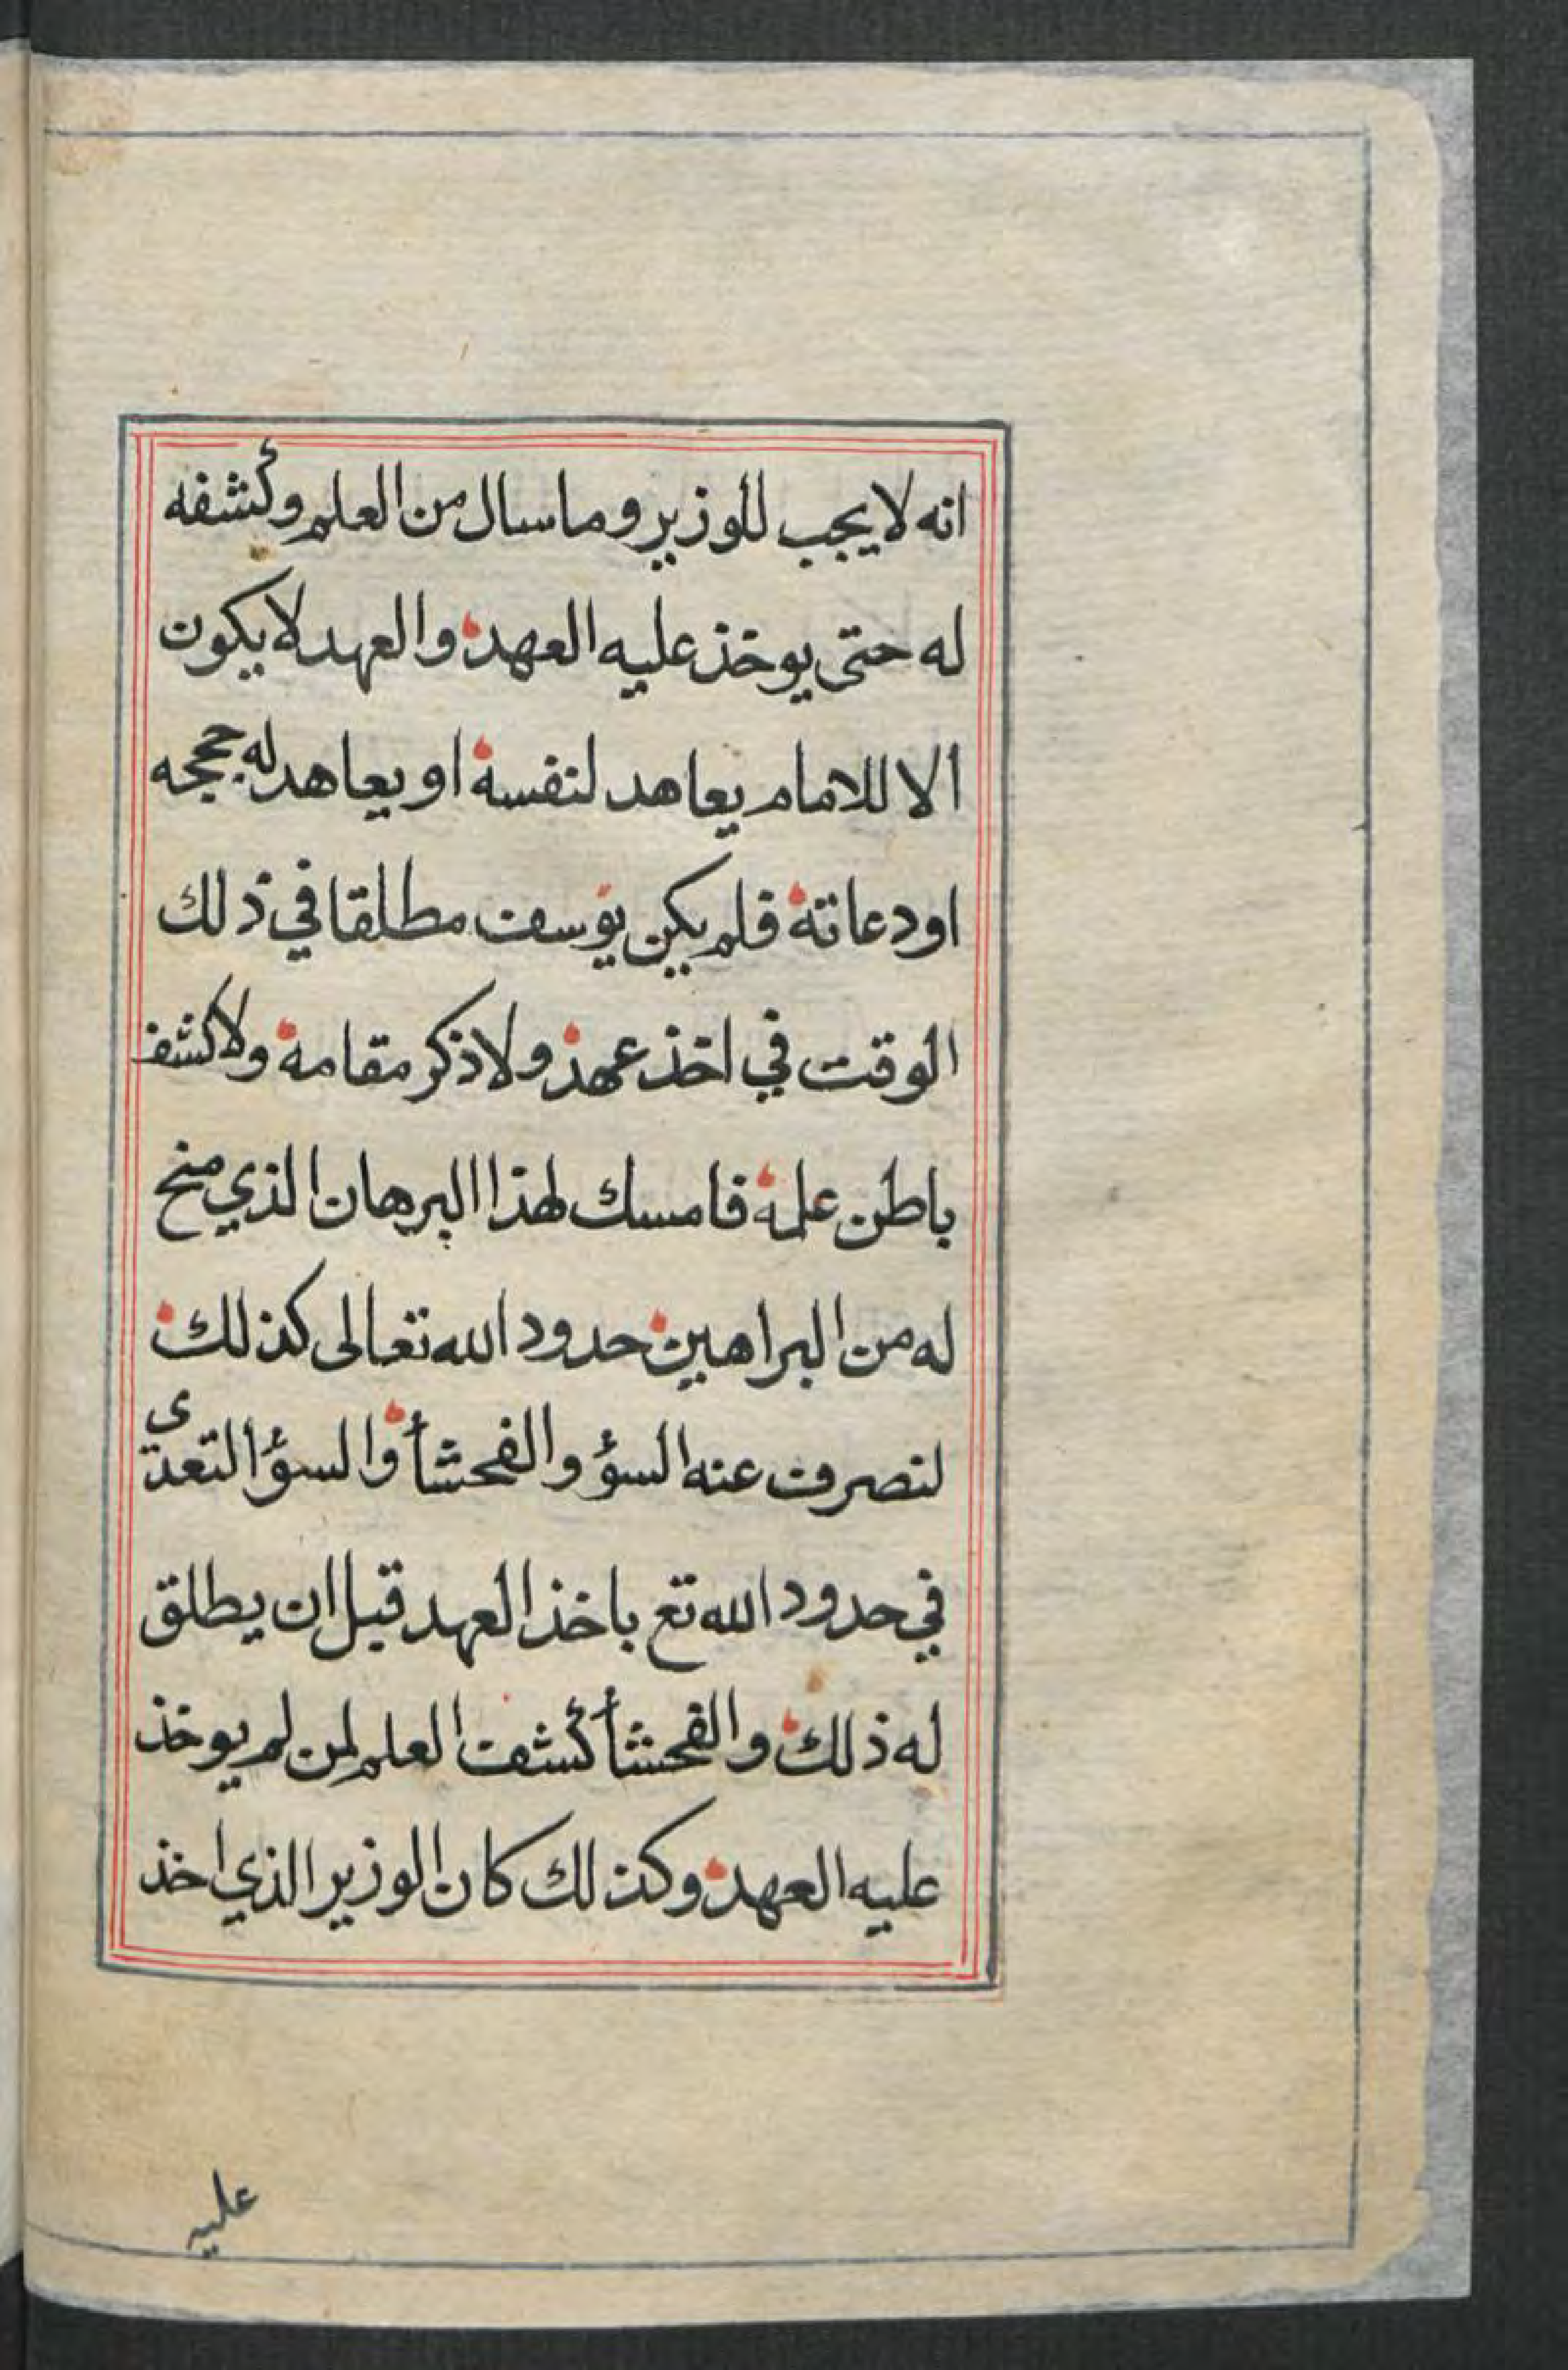 انه لا يجب للوزير وما سال من العلم وكشفه
له حتى يوخذ عليه العهد والعهد لا يكون
الا للامام يعاهد لنفسه او يعاهد له حججه
او دعاته فلم يكن يوسف مطلقا في ذلك
الوقت في اخذ عهد ولا ذكر مقامه ولا كشف
باطن علمه فامسك لهذا البرهان الذي منح
له من البراهين حدود الله تعالى كذلك
لنصرف عنه السؤ والفحشأ والسؤ التعدي
في حدود الله تع باخذ العهد قبل ان يطلق
له ذلك والفحشأ كشف العلم لمن لم يوخذ
عليه العهد وكذلك كان الوزير الذي اخذ
عليه